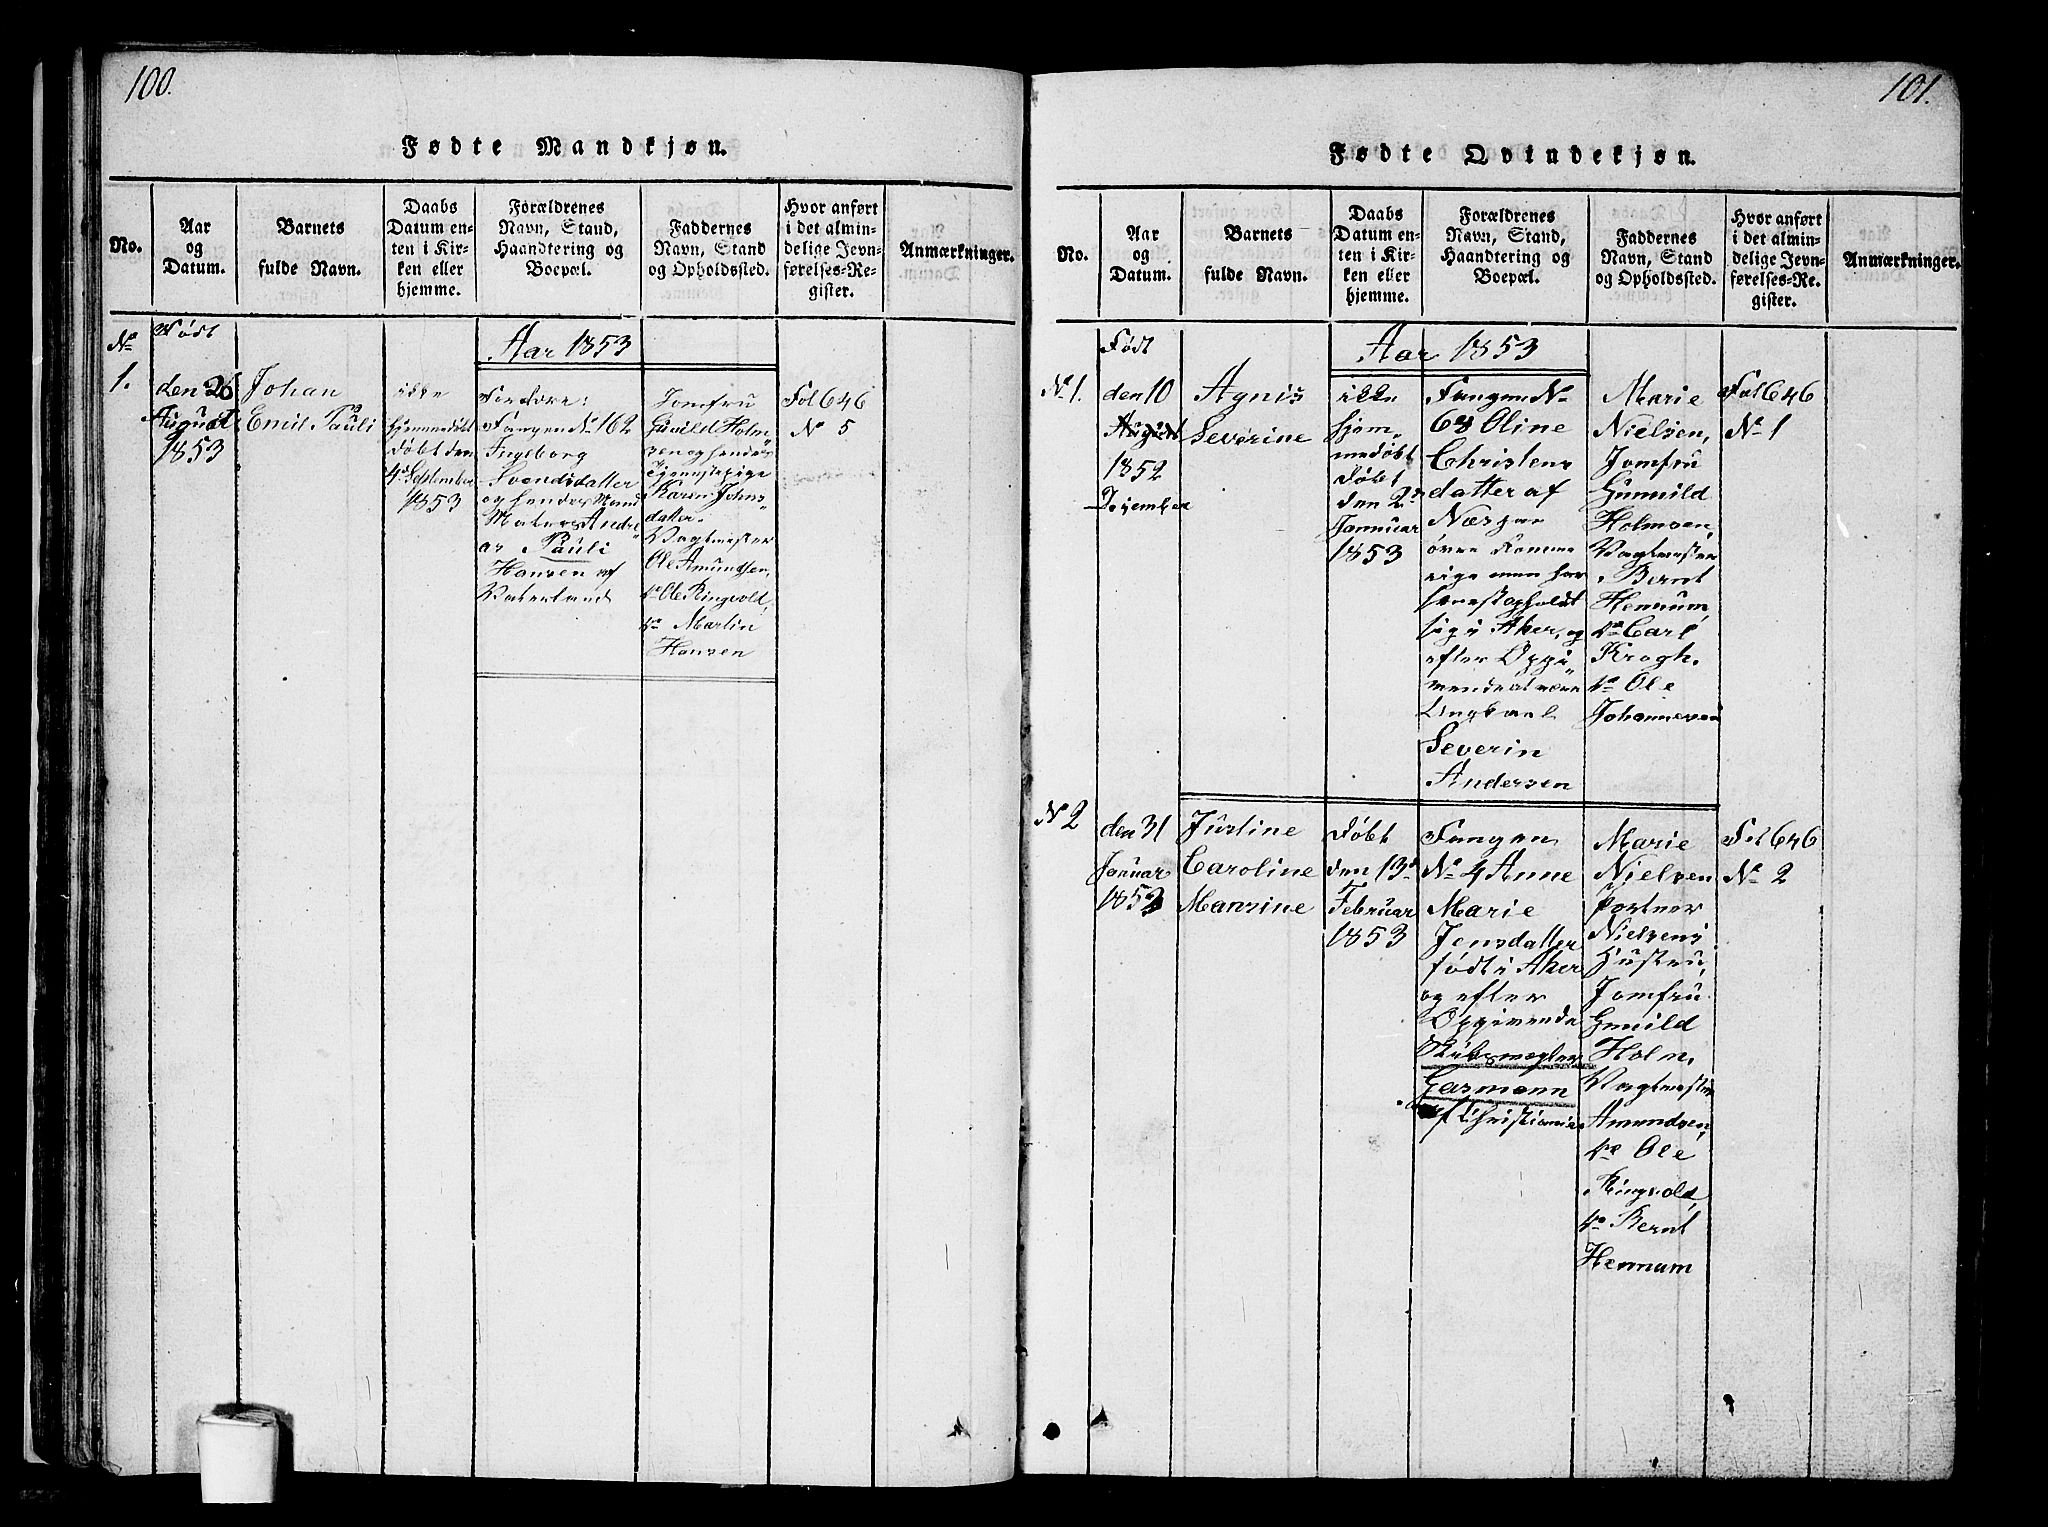 100.
Fødte Mandkjøn.
No.
Aar
og
Datum.
Barnets
fulde Navn.
Daabs
Datum en-
ten i Kir-
ken eller
hjemme.
Forældrenes
Navn, Stand,
Haandtering og
Boepæl.
Faddernes
Navn, Stand
og Opholdssted.
Hvor anført
i det almin-
delige Jevn-
førelses-Re-
gister.
Anmærkninger.
Aar 1853
No
1.
Født
den 26
August
1853
Johan
Emil Pauli
ikke
hjemmedøbt
døbt den
4de September
1853
Forældre:
Fangen No 162
Ingeborg
Svendsdatter
og hendes Mand
Andre
as Pauli
Hansen af
Vaterland
Jomfru
Gunild Holm-
sen og hendes
Tjenestepige
Karen Johns-
datter.
Vagtmester
Ole Amundsen,
do Ole Ringvold,
do Martin
Hansen
Fol 646
No 5
101.
Fødte Qvindekjøn.
No.
Aar
og
Datum.
Barnets
fulde Navn.
Daabs
Datum en-
ten i Kir-
ken eller
hjemme.
Forældrenes
Navn, Stand,
Haandtering og
Boepæl.
Faddernes
Navn, Stand
og Opholdssted.
Hvor anført
i det almin-
delige Jevn-
førelses-Re-
gister.
Anmærkninger.
Aar 1853
No 1.
Født
den 10
August
1852
Desember
Agnis
Severine
ikke
hjem-
medøbt
døbt
den 2den
Januar
1853
Fangen No
68 Oline
Christens
datter af
Næs paa
øvre Romme
rige men har
sig i Aker, og
efter Oppi-
vende at være
Ungkarl
Severin
Andersen
Marie
Nielsen,
Jomfru
Gunnild
Holmsen,
Vagtmester
Bernt
Hennum,
do Carl
Krogh,
do Ole
Johannesen
Fol 646
No 1
No 2
den 31
Januar
1853
Justine
Caroline
Mansine
Døbt
den 13de
Februar
1853
Fangen
No 4 Anne
Marie
Jensdatter
født i Aker
og efter
Oppivende
Garmann
af Christiania
Marie
Nielsen
Portner
Nielsens
Hustru,
Jomfru
Gunild
Holm,
Vagtmester
Amundsen,
do Ole
Ringvold,
do Bernt
Hennum
Fol 646
No 2